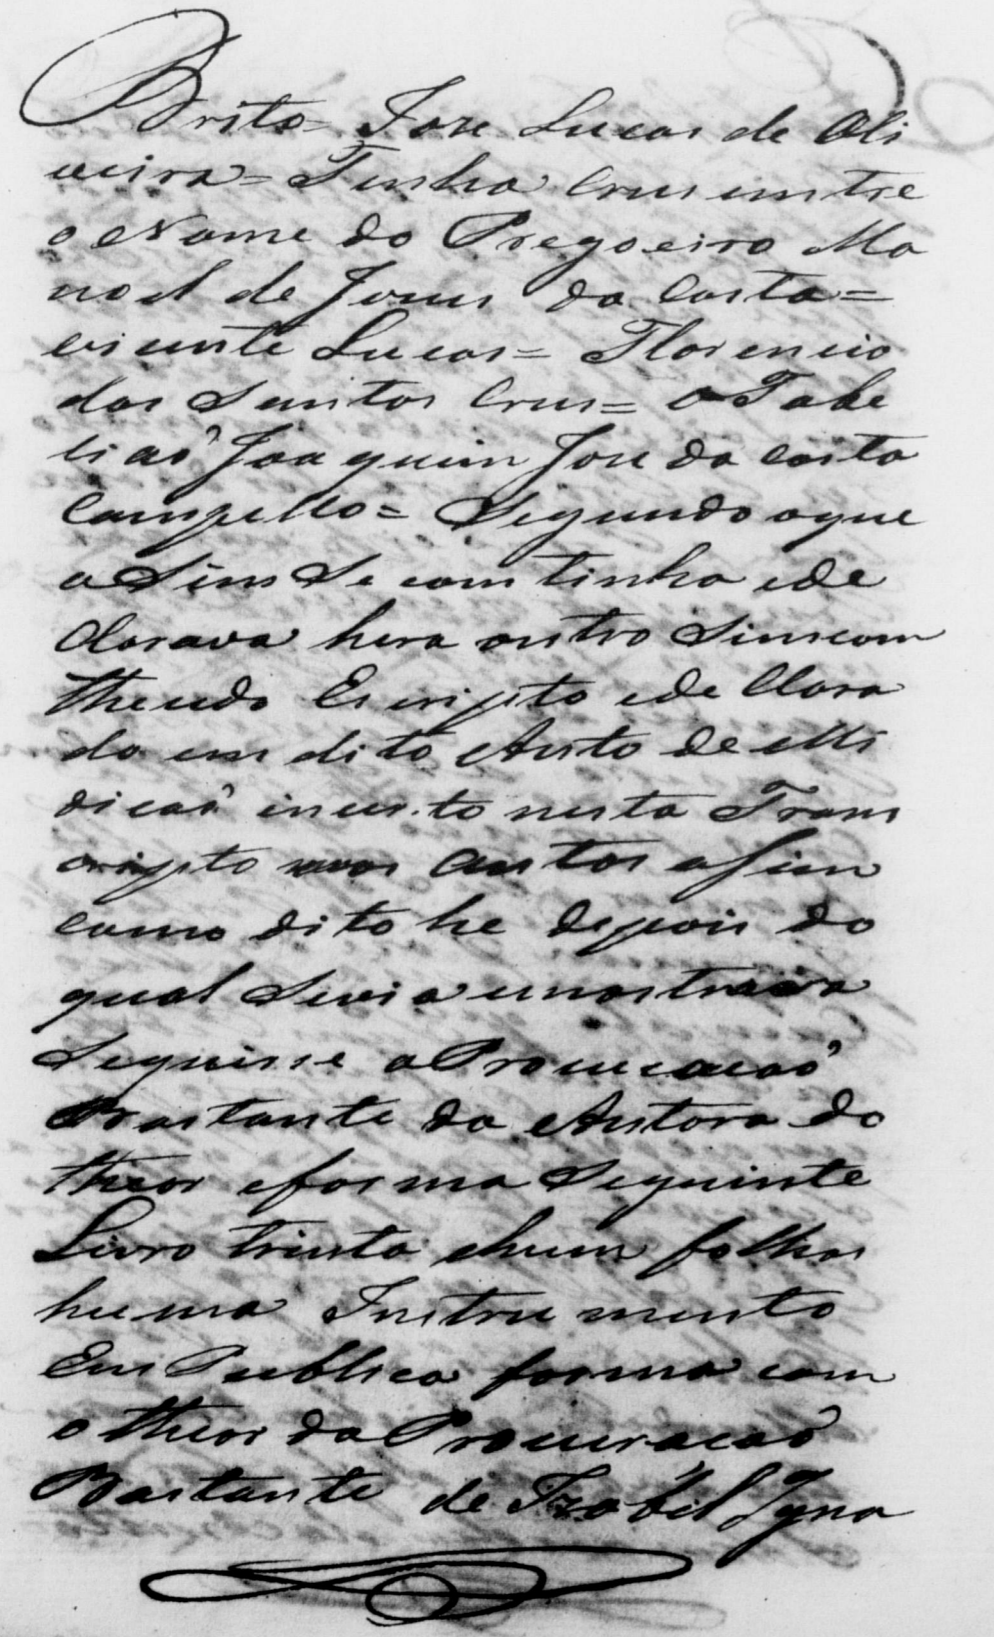 Brito= Joze Lucas de Oli
veira= Tinha Crus emtre
o Nome do Pregoeiro Ma
noel de Jezus da Costa=
Vicente Lucas= Florencio
dos Santos Crus= O Tabe
liaõ Joaquim Joze da Costa
Campello= Segundo oque
aSim Se comtinha ede
Clarava hera outro Simcom
theudo Escripto ede Clara
do em dito Auto de Mi
dicaõ incerto nesta Trans
cripto nos autos aSim
como dito he depois do
qual Sevia emostrava
Seguirse aProcuracaõ
Bastante da Autora do
theor eforma Seguinte
Livro trinta ehum folhas
huma Instrumento
Em Publica forma com
o theor da Procuracaõ
Bastante de Izabel Igna